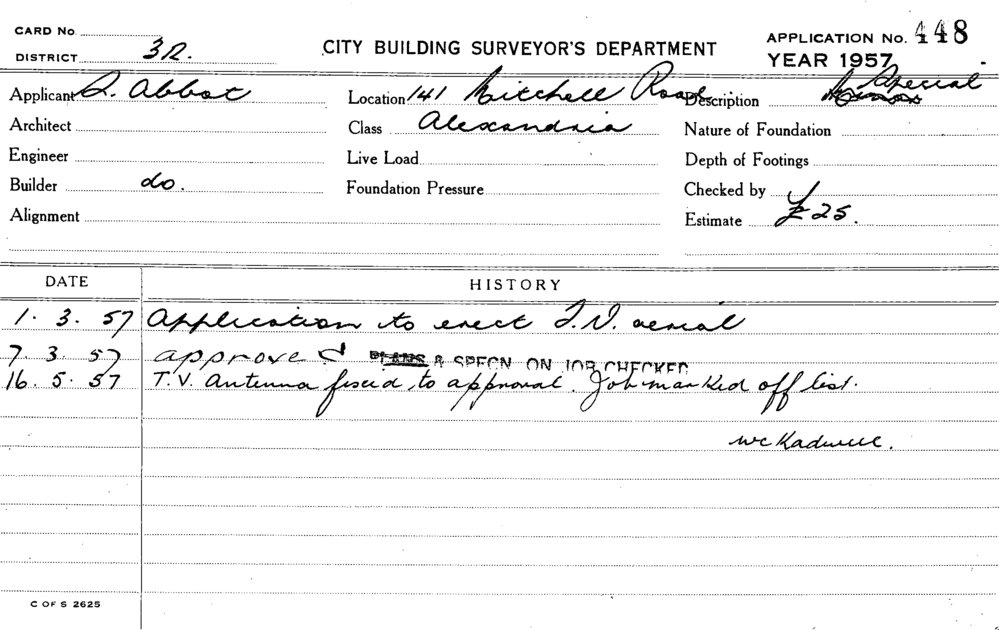 CARD No.
DISTRICT 3R.
CITY BUILDING SURVEYOR'S DEPARTMENT
APPLICATION No. 448
YEAR 1957
Applicant Abbot
Location 141 Mitchell Road
Description Special
Architect
Class Alexandria
Nature of Foundation
Engineer
Live Load
Depth of Footings
Builder do.
Foundation Pressure
Checked by
Alignment
Estimate £25.
DATE HISTORY
1. 3. 57 Application to erect T.V. aerial
7. 3. 57 approved PLANS & SPECN ON JOB CHECKED
16. 5. 57 T.V. Antenna fixed to approval. Job marked off list.
C OF S 2625